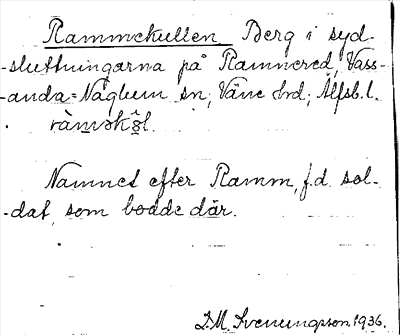 Rammekullen Berg i syd-
-sluttningarna på Ramnered, Vass-
-anda-Naglum sn, Väne hrd, Älfsb. l.
Namnet efter Ramm, f.d. sol-
-dat, som bodde där.
D.M. Svenungsson 1936.